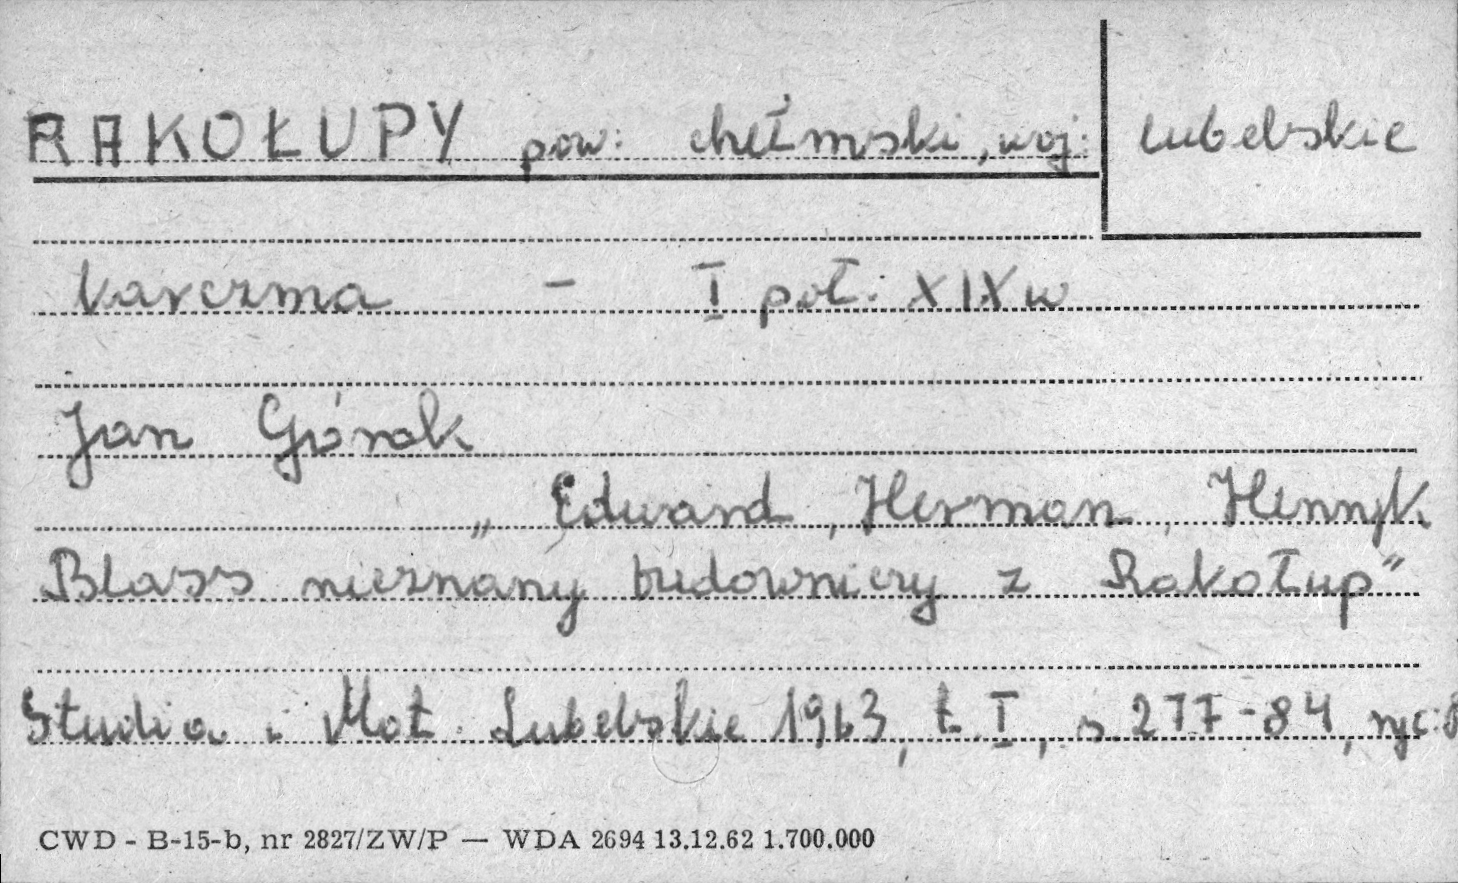 RAKOŁUPY pow: chełmski, woj: lubelskie
karczma - I poł. XIX w
Jan Górak
„ Edward, Herman, Henryk
Blass nieznany budowniczy z Rakołup"
Studia i Mat. Lubelskie 1963, t. I, s. 277-84, ryc:8
CWD - B-15-b, nr 2827/ZW/P — WDA 2694 13.12.62 1.700.000